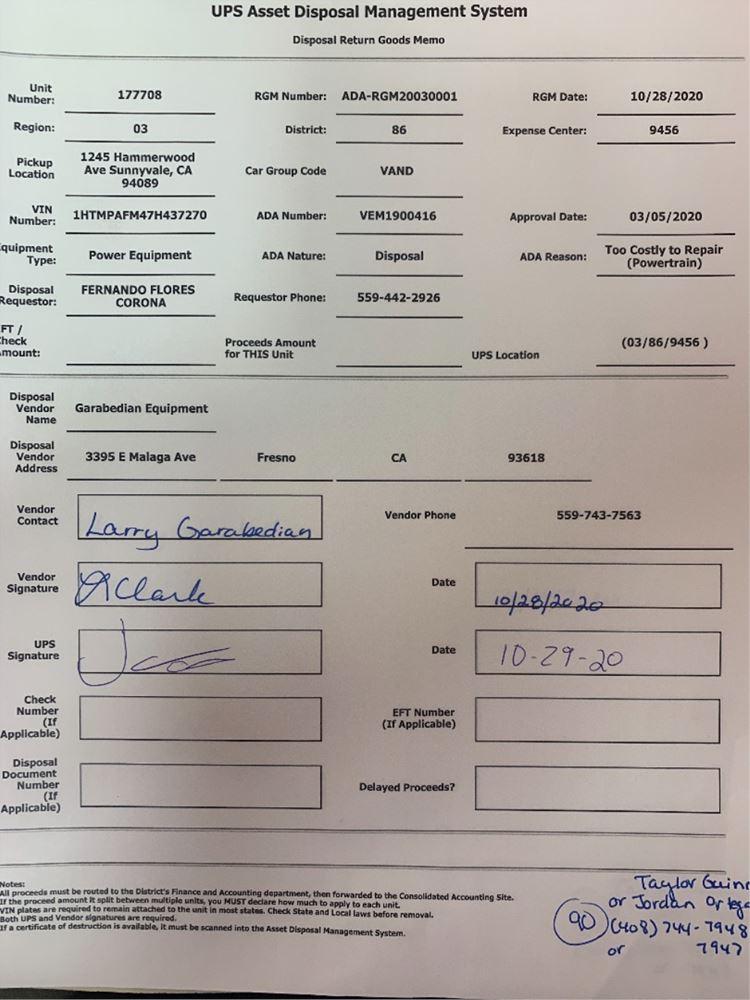 UPS Asset Disposal Management System
Disposal Return Goods Memo
Unit Number: 177708 RGM Number: ADA-RGM20030001 RGM Date: 10/28/2020
Region: 03 District: 86 Expense Center: 9456
Pickup Location 1245 Hammerwood Ave Sunnyvale, CA 94089 Car Group Code VAND
VIN Number: 1HTMPAFM47H437270 ADA Number: VEM1900416 Approval Date: 03/05/2020
quipment Type: Power Equipment ADA Nature: Disposal ADA Reason: Too Costly to Repair (Powertrain)
Disposal Requestor: FERNANDO FLORES CORONA Requestor Phone: 559-442-2926
EFT / Check Amount: Proceeds Amount for THIS Unit UPS Location (03/86/9456 )
Disposal Vendor Name Garabedian Equipment
Disposal Vendor Address 3395 E Malaga Ave Fresno CA 93618
Vendor Contact Larry Garabedian Vendor Phone 559-743-7563
Vendor Signature Clark Date 10/28/2020
UPS Signature Date 10-29-20
Check Number (If Applicable) EFT Number (If Applicable)
Disposal Document Number (If Applicable) Delayed Proceeds?
Notes:
All proceeds must be routed to the District's Finance and Accounting department, then forwarded to the Consolidated Accounting Site.
If the proceed amount it split between multiple units, you MUST declare how much to apply to each unit.
VIN plates are required to remain attached to the unit in most states. Check State and Local laws before removal.
Both UPS and Vendor signatures are required.
If a certificate of destruction is available, it must be scanned into the Asset Disposal Management System.
Taylor
or Jordan
90 (408) 744-7948
or 7947